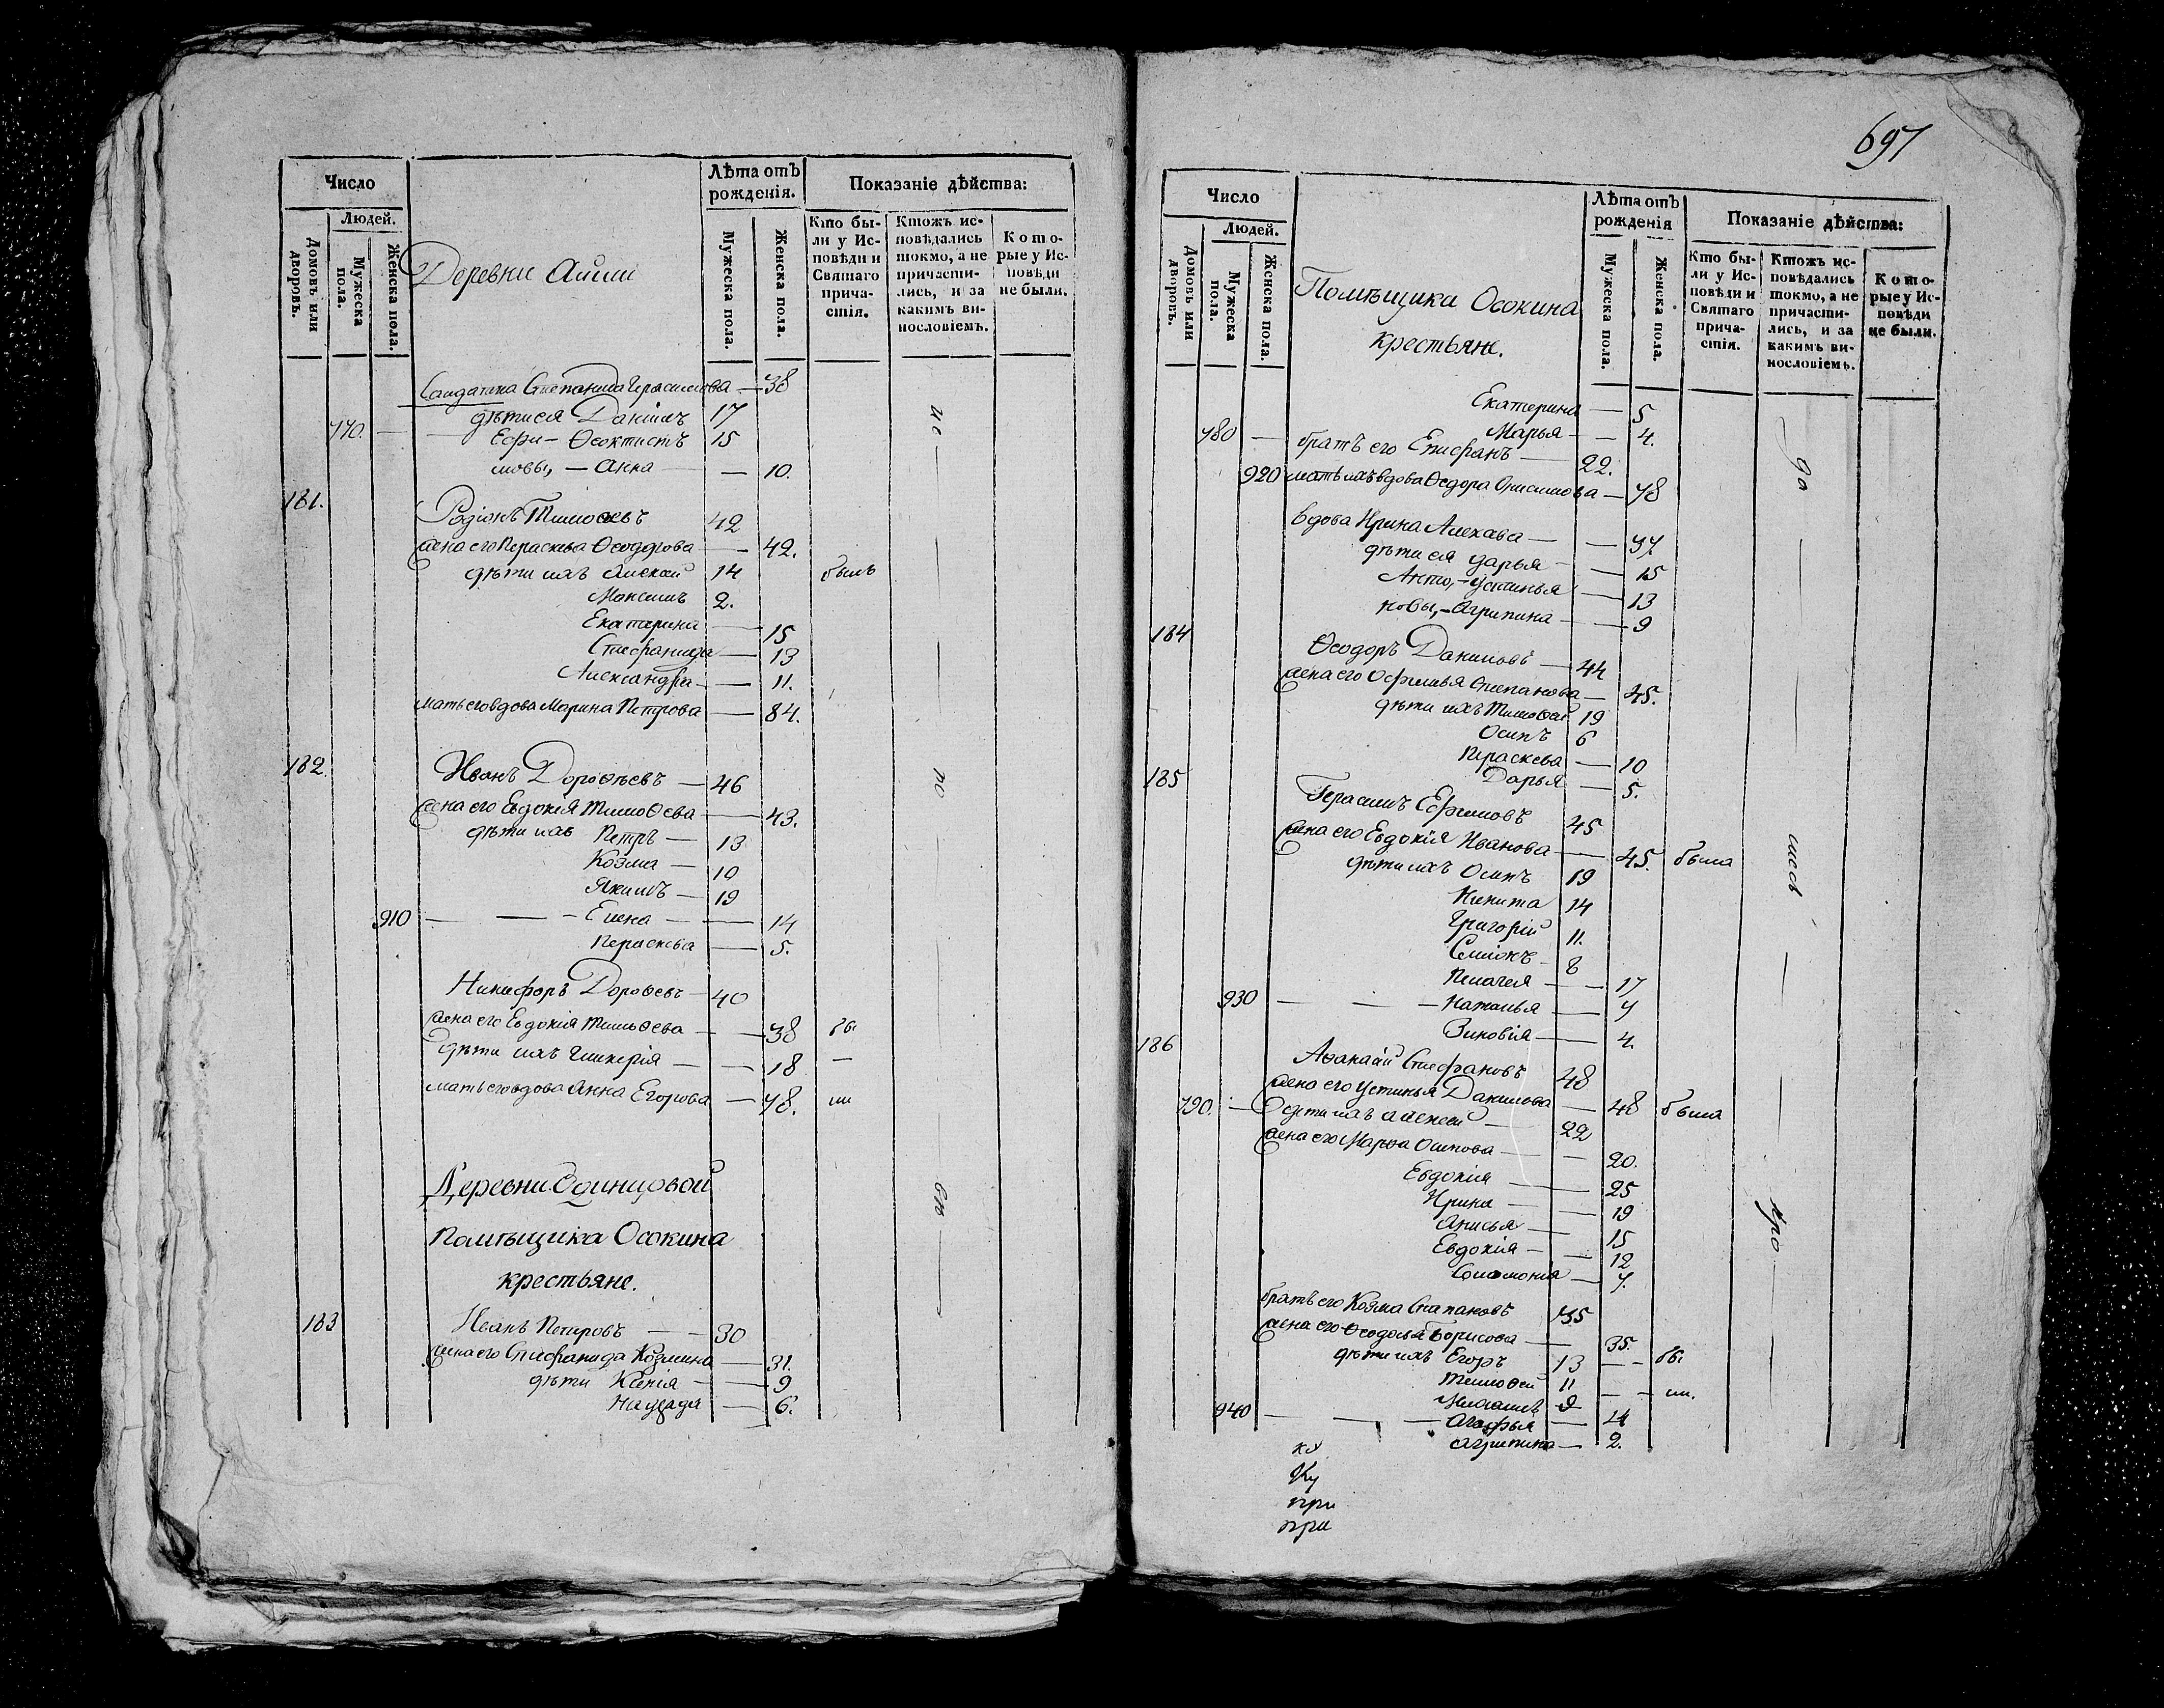 Число
Людей.
Домовъ или дворовъ.
Мужеска пола.
Женска пола.
Деревни Айши
Лѣта отъ рожденія.
Мужеска пола.
Женска пола.
Показаніе дѣйства:
Кто бы-
ли у Ис-
повѣди и
Святаго
прича-
стія.
Ктожъ ис-
повѣдались
токмо, а не
причасти-
лись, и за
какимъ ви-
нословіемъ.
Кото-
рые у Ис-
повѣди
не были.
Салдатка Степанида Герасимова — 38
дѣти ея Данiилъ 17
770. — Ефи- Ѳеоктистъ 15
мовы, — Анна — 10.
181.
Родіонъ Тимоѳеевъ 42
жена его Параскева Ѳеодорова — 42.
дѣти ихъ Алексѣй 14 былъ
Максимъ 2.
Екатерина — 15
Стефанида — 13
Александра — 11.
мать его вдова Марина Петрова — 84.
182.
Иванъ Дороѳѣевъ — 46
жена его Евдокія Тимоѳеева — 43.
дѣти ихъ Петръ — 13
Козма — 10
Якимъ — 19
910 — Елена — 14
Параскева — 5.
Никифоръ Дороѳеевъ — 40
жена его Евдокія Тимоѳеева — 38 бы
дѣти ихъ Гликерія — 18 —
мать его вдова Анна Егорова — 78. ли
Деревни Одинцовой
Помѣщика Осокина
крестьяне.
183
Иванъ Петровъ — 30
жена его Стефанида Козмина — 31.
дѣти Ксенія — 9
6.
ис
по
вѣ
697
Число
Людей.
Домовъ или дворовъ.
Мужеска пола.
Женска пола.
Помѣщика Осокина
крестьяне.
Лѣта отъ рожденія
Мужеска пола.
Женска пола.
Показаніе дѣйства:
Кто бы-
ли у Ис-
повѣди и
Святаго
прича-
стія.
Ктожъ ис-
повѣдались
токмо, а не
причасти-
лись, и за
какимъ ви-
нословіемъ.
Кото-
рые у Ис-
повѣди
не были.
Екатерина — 5
Марья — 4.
780 — братъ его Епифанъ — 22.
920 мать ихъ вдова Ѳедора Онисимова — 78
вдова Ирина Алексѣева — 37.
дѣти ея Дарья — 15
Анто, — Устинья — 13
новы, — Агрипина — 9
184
Ѳеодоръ Даниловъ — 44
жена его Офимья Степанова — 45.
дѣти ихъ Тимоѳей 19
Осипъ 6
Параскева — 10
Дарья — 5.
185
Герасимъ Ефимовъ 45
жена его Евдокія Иванова — 45. была
дѣти ихъ Осипъ 19
Никита 14
Григорій 11.
Симіонъ 8
Пелагея — 17
930 — Наталья — 7
Зиновія — 4.
186
Аѳанасій Стефановъ 48
жена его Устинья Данилова — 48 была
790. — дѣти ихъ Алексѣй — 22
жена его Марѳа Осипова — 20.
Евдокія — 25
Ирина — 19
Анисья — 15
Евдокія — 12
Соломонія — 7.
братъ его Козма Степановъ 35
жена его Ѳеодосья Борисова — 35.
дѣти ихъ Егоръ 13 — бы
Тимоѳей 11 — ли.
9
940 — Агафья — 14
Агрипина — 2.
да
лись
кро
ку
при
при